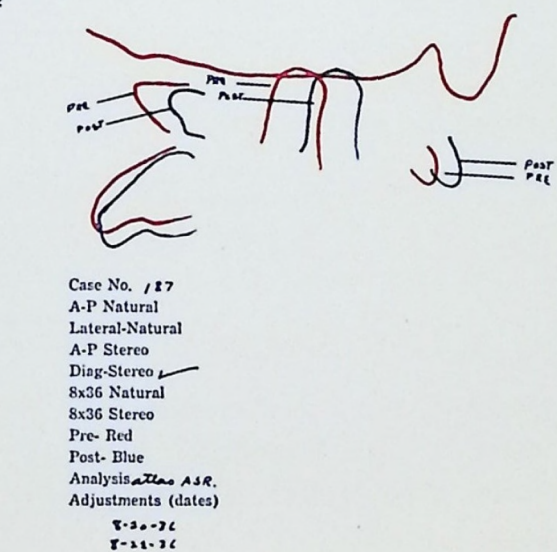 PRE
POST
PRE
POST
POST
PRE
Case No. 187
A-P Natural
Lateral-Natural
A-P Stereo
Diag-Stereo ✓
8x36 Natural
8x36 Stereo
Pre- Red
Post- Blue
Analysis atlas ASR.
Adjustments (dates)
8-20-36
8-21-36